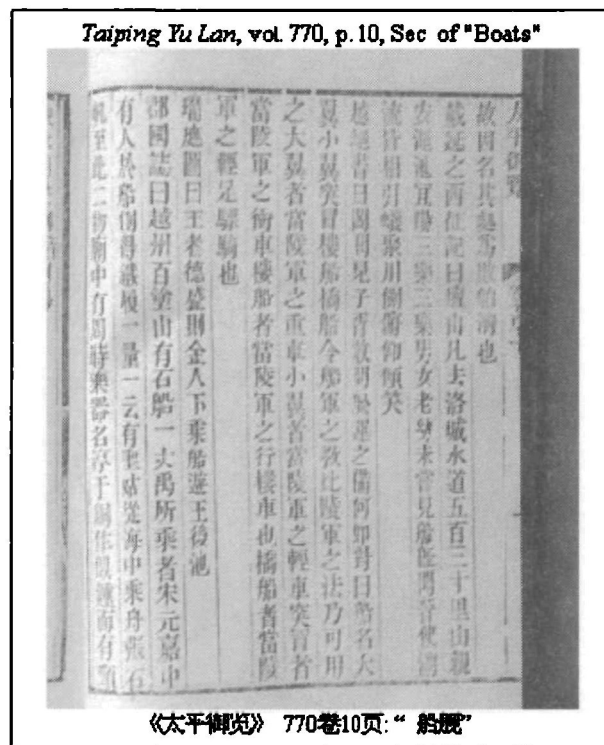 Taiping Yu Lan, vol. 770, p. 10, Sec of "Boats"
太平御覽
故因名其處為敗舶灣也
戴延之西征記曰檀山凡去洛城水道五百三十里由新
安澠池宜陽三樂三樂男女老幼未嘗見船既聞晉使溯
流皆相引蟻聚川側俯仰傾笑
越絕書曰闔閭見子胥敢問船運之備何如對曰船名大
翼小翼突冒樓船橋船今船軍之教比陵軍之法乃可用
之大翼者當陵軍之重車小翼者當陵軍之輕車突冒者
當陵軍之衝車樓船者當陵軍之行樓車也橋船者當陵
軍之輕足驃騎也
瑞應圖曰王者德盛則金人下乘船遊王後池
郡國誌曰越州百塗山有石船一丈禹所乘者宋元嘉中
有人於船側得鐵履一量一云有聖姑從海中乘舟張石
帆至此二物廟中有周時樂器名錞于銅作似鐘而有頸
《太平御览》 770卷10页: “